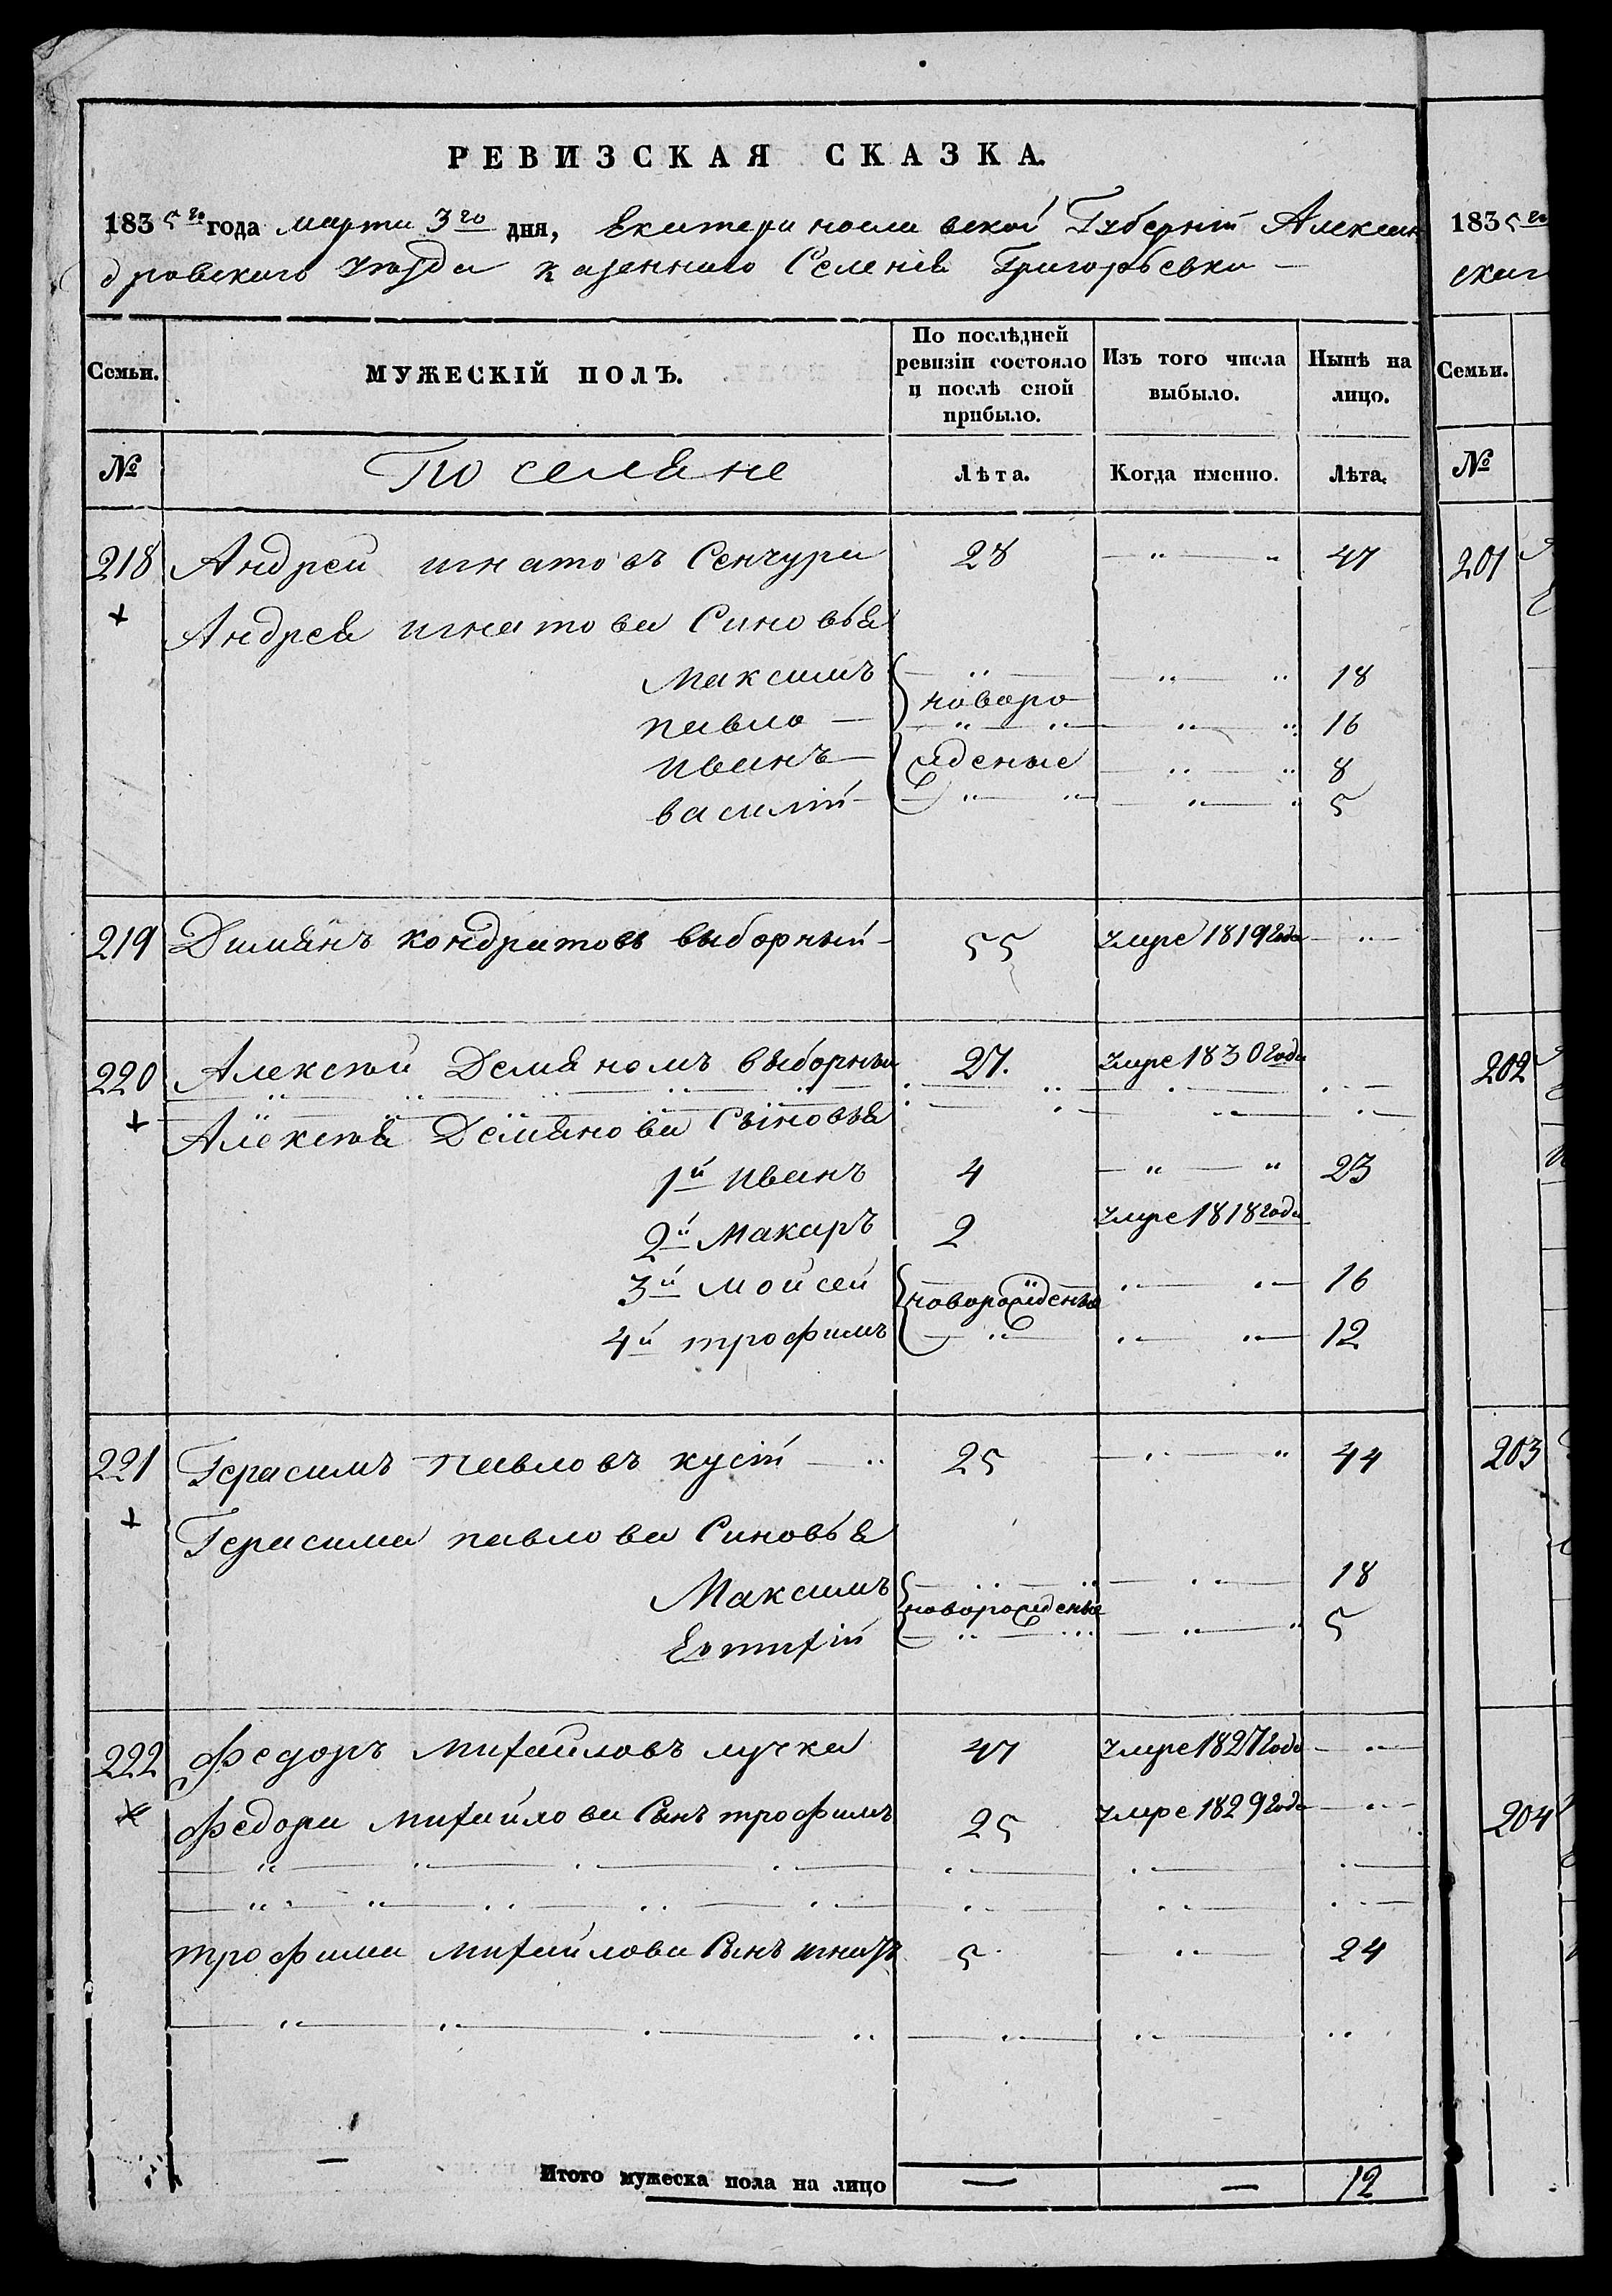 РЕВИЗСКАЯ СКАЗКА.
1835го года марта 3го дня, Екатеринославской Губерніи Алексан
дровского уезда казенного Селенія Григорьевки —
Семьи. МУЖЕСКІЙ ПОЛЪ. По послѣдней ревизіи состояло и послѣ сной прибыло. Изъ того числа выбыло. Нынѣ на лицо.
№ Поселяне Лѣта. Когда именно. Лѣта.
218 Андрей игнатовъ Сенчура 28 — " — " 47
+ Андрея игнатова Синовья
Максимъ новоро 18
павло — 16
иванъ — жденые 8
василій — 5
219 Димянъ кондратовъ выборный — 55 умре 1819 года
220 Алексей Демяномъ выборный 27. умре 1830 года
+ Алексея Демянова Сыновья
1й иванъ 4 — " — " 23
2й Макаръ 2 умре 1818 года
3й мойсей новорожденые 16
4й трофимъ 12
221 Герасимъ павловъ кусій 25 44
+ Герасима павлова Синовья
Максимъ новорожденые 18
Евтихій 5
222 федоръ михайловъ лучка 47 умре 1827 года
федора михайлова Сынъ трофимъ 25 умре 1829 года
трофима михайлова Сынъ игнатъ 5 24
Итого мужеска пола на лицо — — 12
1835го
ског
Семьи.
№
201
202
203
204